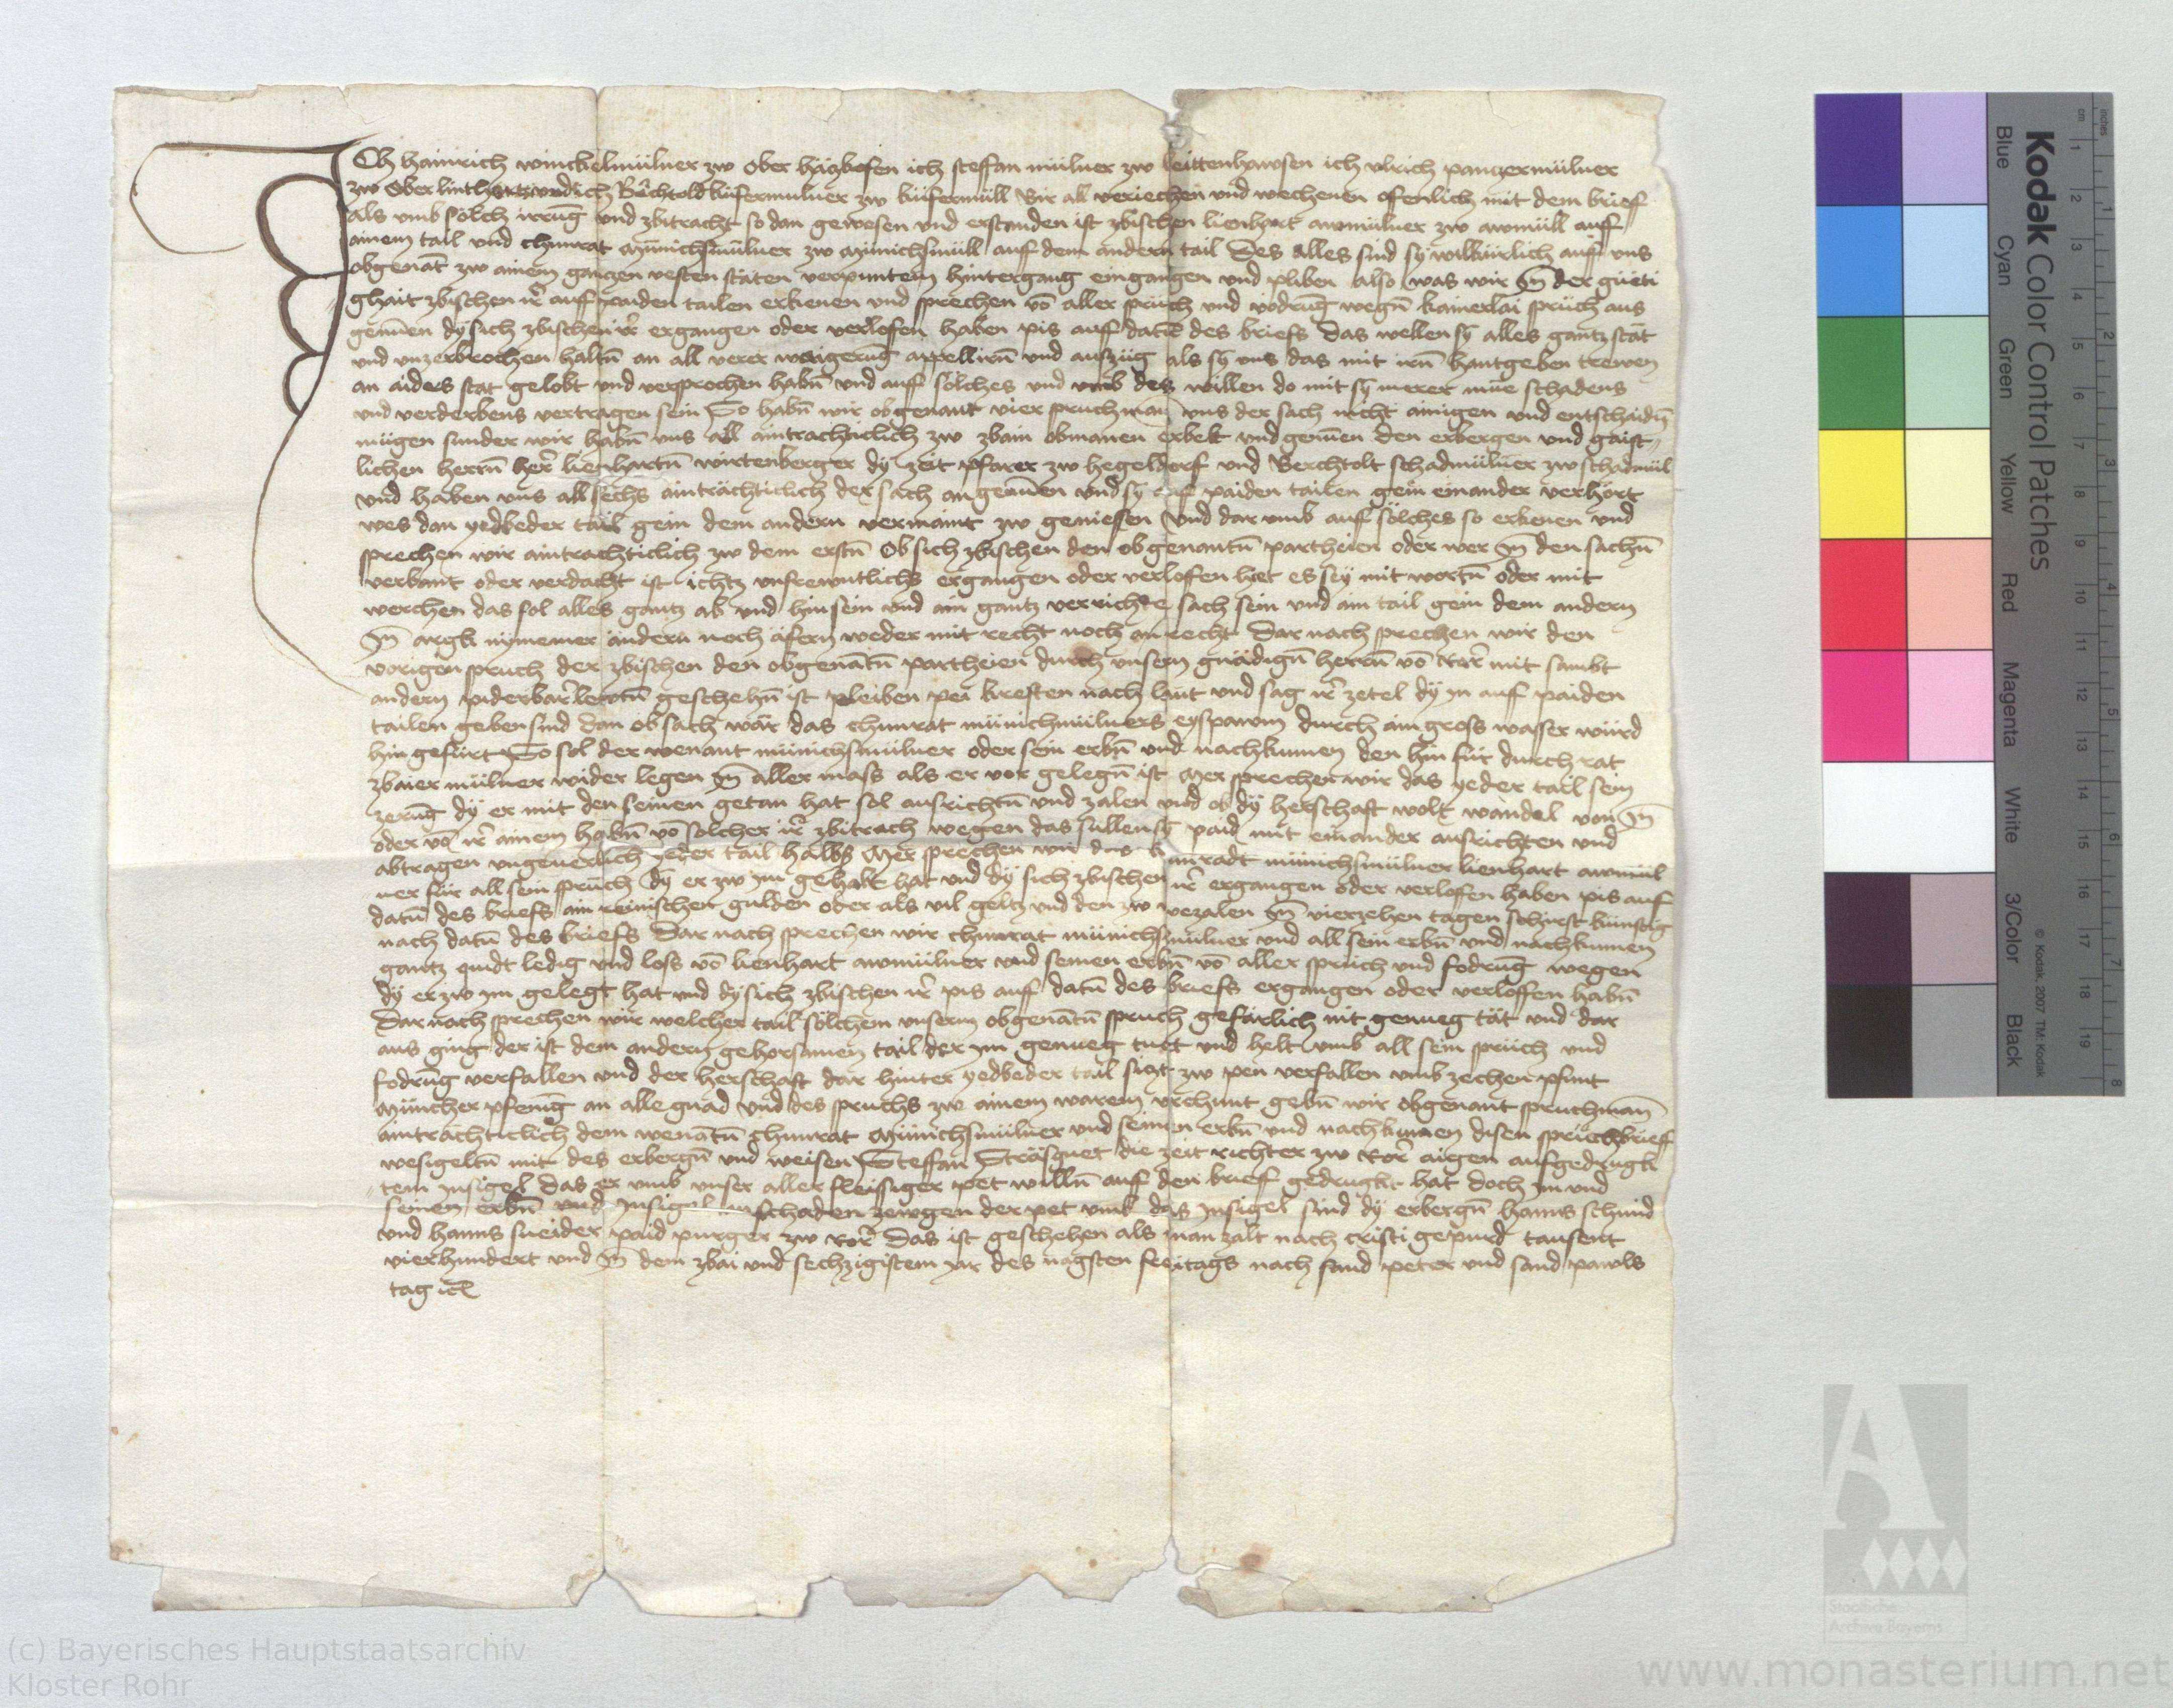 Ich hainrich winckelmülner zw ober häghofen ich steffan mülner zw leittenhawsen ich vlrich panczermülner
zw Oberlinthart vnd ich Bächtold küfermulner zw küfermüll Wir all veriechen vnd wechenen ofenlich mit dem brief
als vmb sölch irrūg vnd zbitracht so dan gewesen vnd erstanden ist zbischen lienhart awmülner zw awmüll auf
ainem tail vnd chunrat Münichsmülner zw Münichsmüll auf dem andern tail Des alles sind sÿ wilkürlich auf vns
obgenāt zw ainem ganczen vesten stäten verpuntem hintergang eingangen vnd pliben also was wir Jn der güeti
ghait zbischen ir auff paiden tailen erkenen vnd sprechen vō aller sprüch vnd vodrūg wegn̄ kainerlai sprüch aus
genūen dÿ sich zbischen ir ergangen oder verlofen haben pis auf datū des briefs Das wellen sÿ alles gantz stät
vnd vnzerbrochen haltn̄ an all verer waigerūg appellirn̄ vnd auszüg als sÿ vns das mit irn̄ hantgeben trewen
an aides stat gelobt vnd versprochen habn̄ vnd auff sölches vnd vmb des willen do mit sÿ merer müe schadens
vnd verderbens vertragen sein So habn̄ wir obgenant vier spruchman vns der sach nicht ainigen vnd entschaidn̄
mügen sunder wir habn̄ vns all aintrachticlich zw zbain obmanen erbelt vnd genūen den erbergen vnd gaist
lichen herrn̄ her lienhartn̄ wirtenberger dÿ zeit pfarer zw hegeldorf vnd Berchtolt schadmülner zw schadmül
vnd haben vns all sechs ainträchticlich der sach angenūen vnd sÿ auf paiden tailen gein einander verhört
wes dan yedbeder tail gein dem andern vermaint zw geniessen vnd dar vmb auf sölches so erkenen vnd
sprechen wir aintrachticlich zw dem erstn̄ Ob sich zbischen den obgenantn̄ partheien oder wer Jn den sachn̄
verbant oder verdacht ist ichtz vnfrewntlichs ergangen oder verloffen het es seÿ mit wortn̄ oder mit
werchen das sol alles gantz ab vnd hin sein vnd ain gantz verrichte sach sein vnd ain tail gein dem andern
Jn argk nymemer andern noch äfern weder mit recht noch an recht Dar nach sprechen wir den
vorigen spruch der zbischen den obgenātn̄ partheien durch vnsern gnädign̄ herrn̄ vō Ror mit sambt
andern piderbar lewtn̄ geschehn̄ ist pleiben pei kreften nach laut vnd sag ir zetel dÿ jn auff paiden
tailen geben sind dan ob sach wär das chunrat münichmülners eyspawm durch ain gross wasser würd
hin gefürt So sol der wenant münichsmülner oder sein erbn̄ vnd nachkumen den hin für durch rat
zbaier mülner wider legen Jn aller mass als er vor gelegn̄ ist Mer sprechen wir das yeder tail sein
zerūg dÿ er mit den seinen getan hat sol ausrichtn̄ vnd zalen vnd ob dÿ herschaft wolt wandel von Jn
oder vō ir ainem habn̄ vō solcher ir zbitrach wegen das süllen sÿ paid mit einander ausrichten vnd
abtragen vngeuerlich yeder tail halbs Mer sprechen wir das kunradt münichsmülner lienhart awmül
ner für all sein sprüch dÿ er zw im gehabt hat vnd dÿ sich zbischen ir ergangen oder verloffen haben pis auf
datū des briefs ain reinischer gulden oder als vil geltz vnd den zw wezalen Jn vierzehen tagen schirst künftig
nach datū des briefs Dar nach sprechen wir chunrat münichsmülner vnd all sein erbn̄ vnd nachkumen
gantz quidt ledig vnd loss vō lienhart awmülner vnd seinen erbn̄ vō aller sprüch vnd fodrūg wegen
dÿ er zw im gelegt hat vnd dÿ sich zbischen ir pis auff datū des briefs ergangen oder verloffen habn̄
Dar nach sprechen wir welcher tail sölchem vnserm obgenātn̄ spruch gefärlich nit genueg tät vnd dar
aus ging der ist dem andern gehorsamen tail der im genueg tuet vnd helt vmb all sein sprüch vnd
fodrūg verfallen vnd der herschaft dar hinter yedbeder tail sitzt zw pen verfallen vmb zechen pfunt
Müncher pfenīg an alle gnad vnd des spruchs zw ainem waren vrchunt gebn̄ wir obgenant spruchman
ainträchticlich dem wenātn̄ chunrat Münichsmülner vnd seinen erbn̄ vnd nachkumen disen spruchbrieff
wesigeltn̄ mit des erbergn̄ vnd weisen Steffan Sträsguet die zeit richter zw Ror aigen aufgedrugk
tem Jnsigel das er vmb vnser aller fleissiger pet willn̄ auff den brieff gedrugkt hat doch im vnd
seinen erbn̄ vnd Jnsigel an schaden zewgen der pet vmb das Jnsigel sind dÿ erbergn̄ hanns schmid
vnd hanns sneider paid purger zw Ror Das ist geschehen als man zalt nach cristi gepurd tausent
vierhundert vnd Jn dem zbai vnd sechzigistem jar des nagsten freitags nach sand peter vnd sand pawls
tag ic̄
Kodak Color Control Patches
Blue Cyan Green Yellow Red Magenta White 3/Color Black
© Kodak, 2007 TM: Kodak
(c) Bayerisches Hauptstaatsarchiv
Kloster Rohr
Staatliche
Archive Bayerns
www.monasterium.net